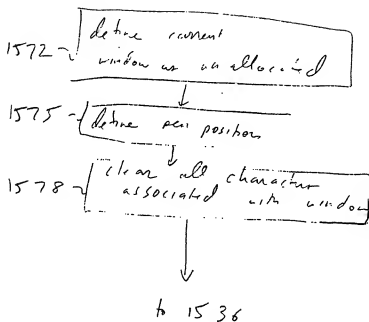 1572
define current
window as unallocated
1575
define pen position
1578
clear all character
associated with window
to 1536